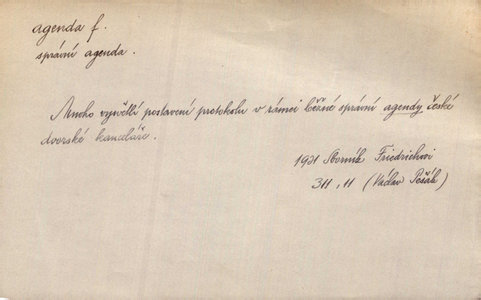 agenda f.
správní agenda.
Mnoho vysvětlí postavení protokolu v rámci běžné správní agendy české
dvorské kanceláře.
1931 Sborník Friedrichovi
311, 11 (Václav Pešák)